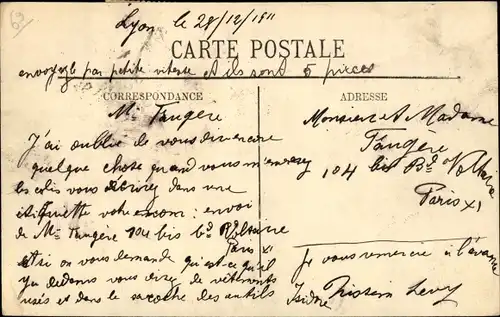 Lyon le 28/12/1911
CARTE POSTALE
par petite vitesse et ils sont 5 pièces
CORRESPONDANCE
ADRESSE
Mr Faugère
J'ai oublié de vous
quelque chose quand vous m'enverrez
les colis vous écrivez dans une
étiquette votre nom: envoi
de Mr Faugère 104 bis Bd Voltaire
Paris XI
et si on vous demande qu'est-ce qu'il
y a dedans vous direz de vêtements
usés et dans la sacoche des outils
Monsieur et Madame
Faugère
104 bis Bd Voltaire
Paris XI
Je vous remercie à l'avance
Isidore
Levy